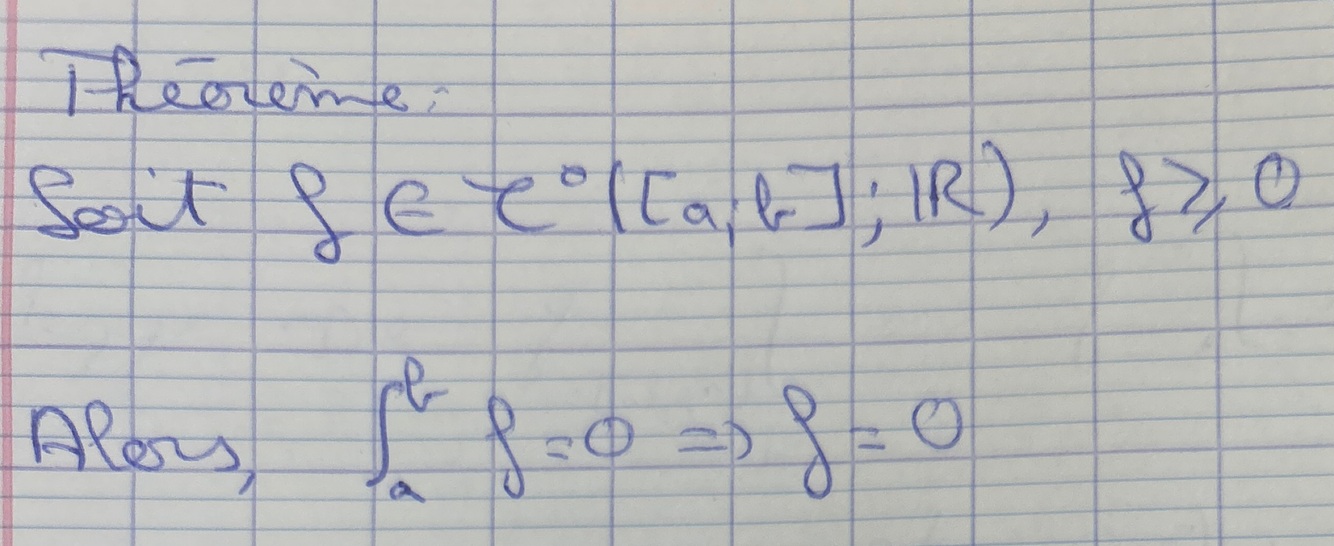 Théorème:
Soit f ∈ C⁰([a,b];ℝ), f ⩾ 0
Alors, ∫ₐᵇ f = 0 ⇒ f = 0